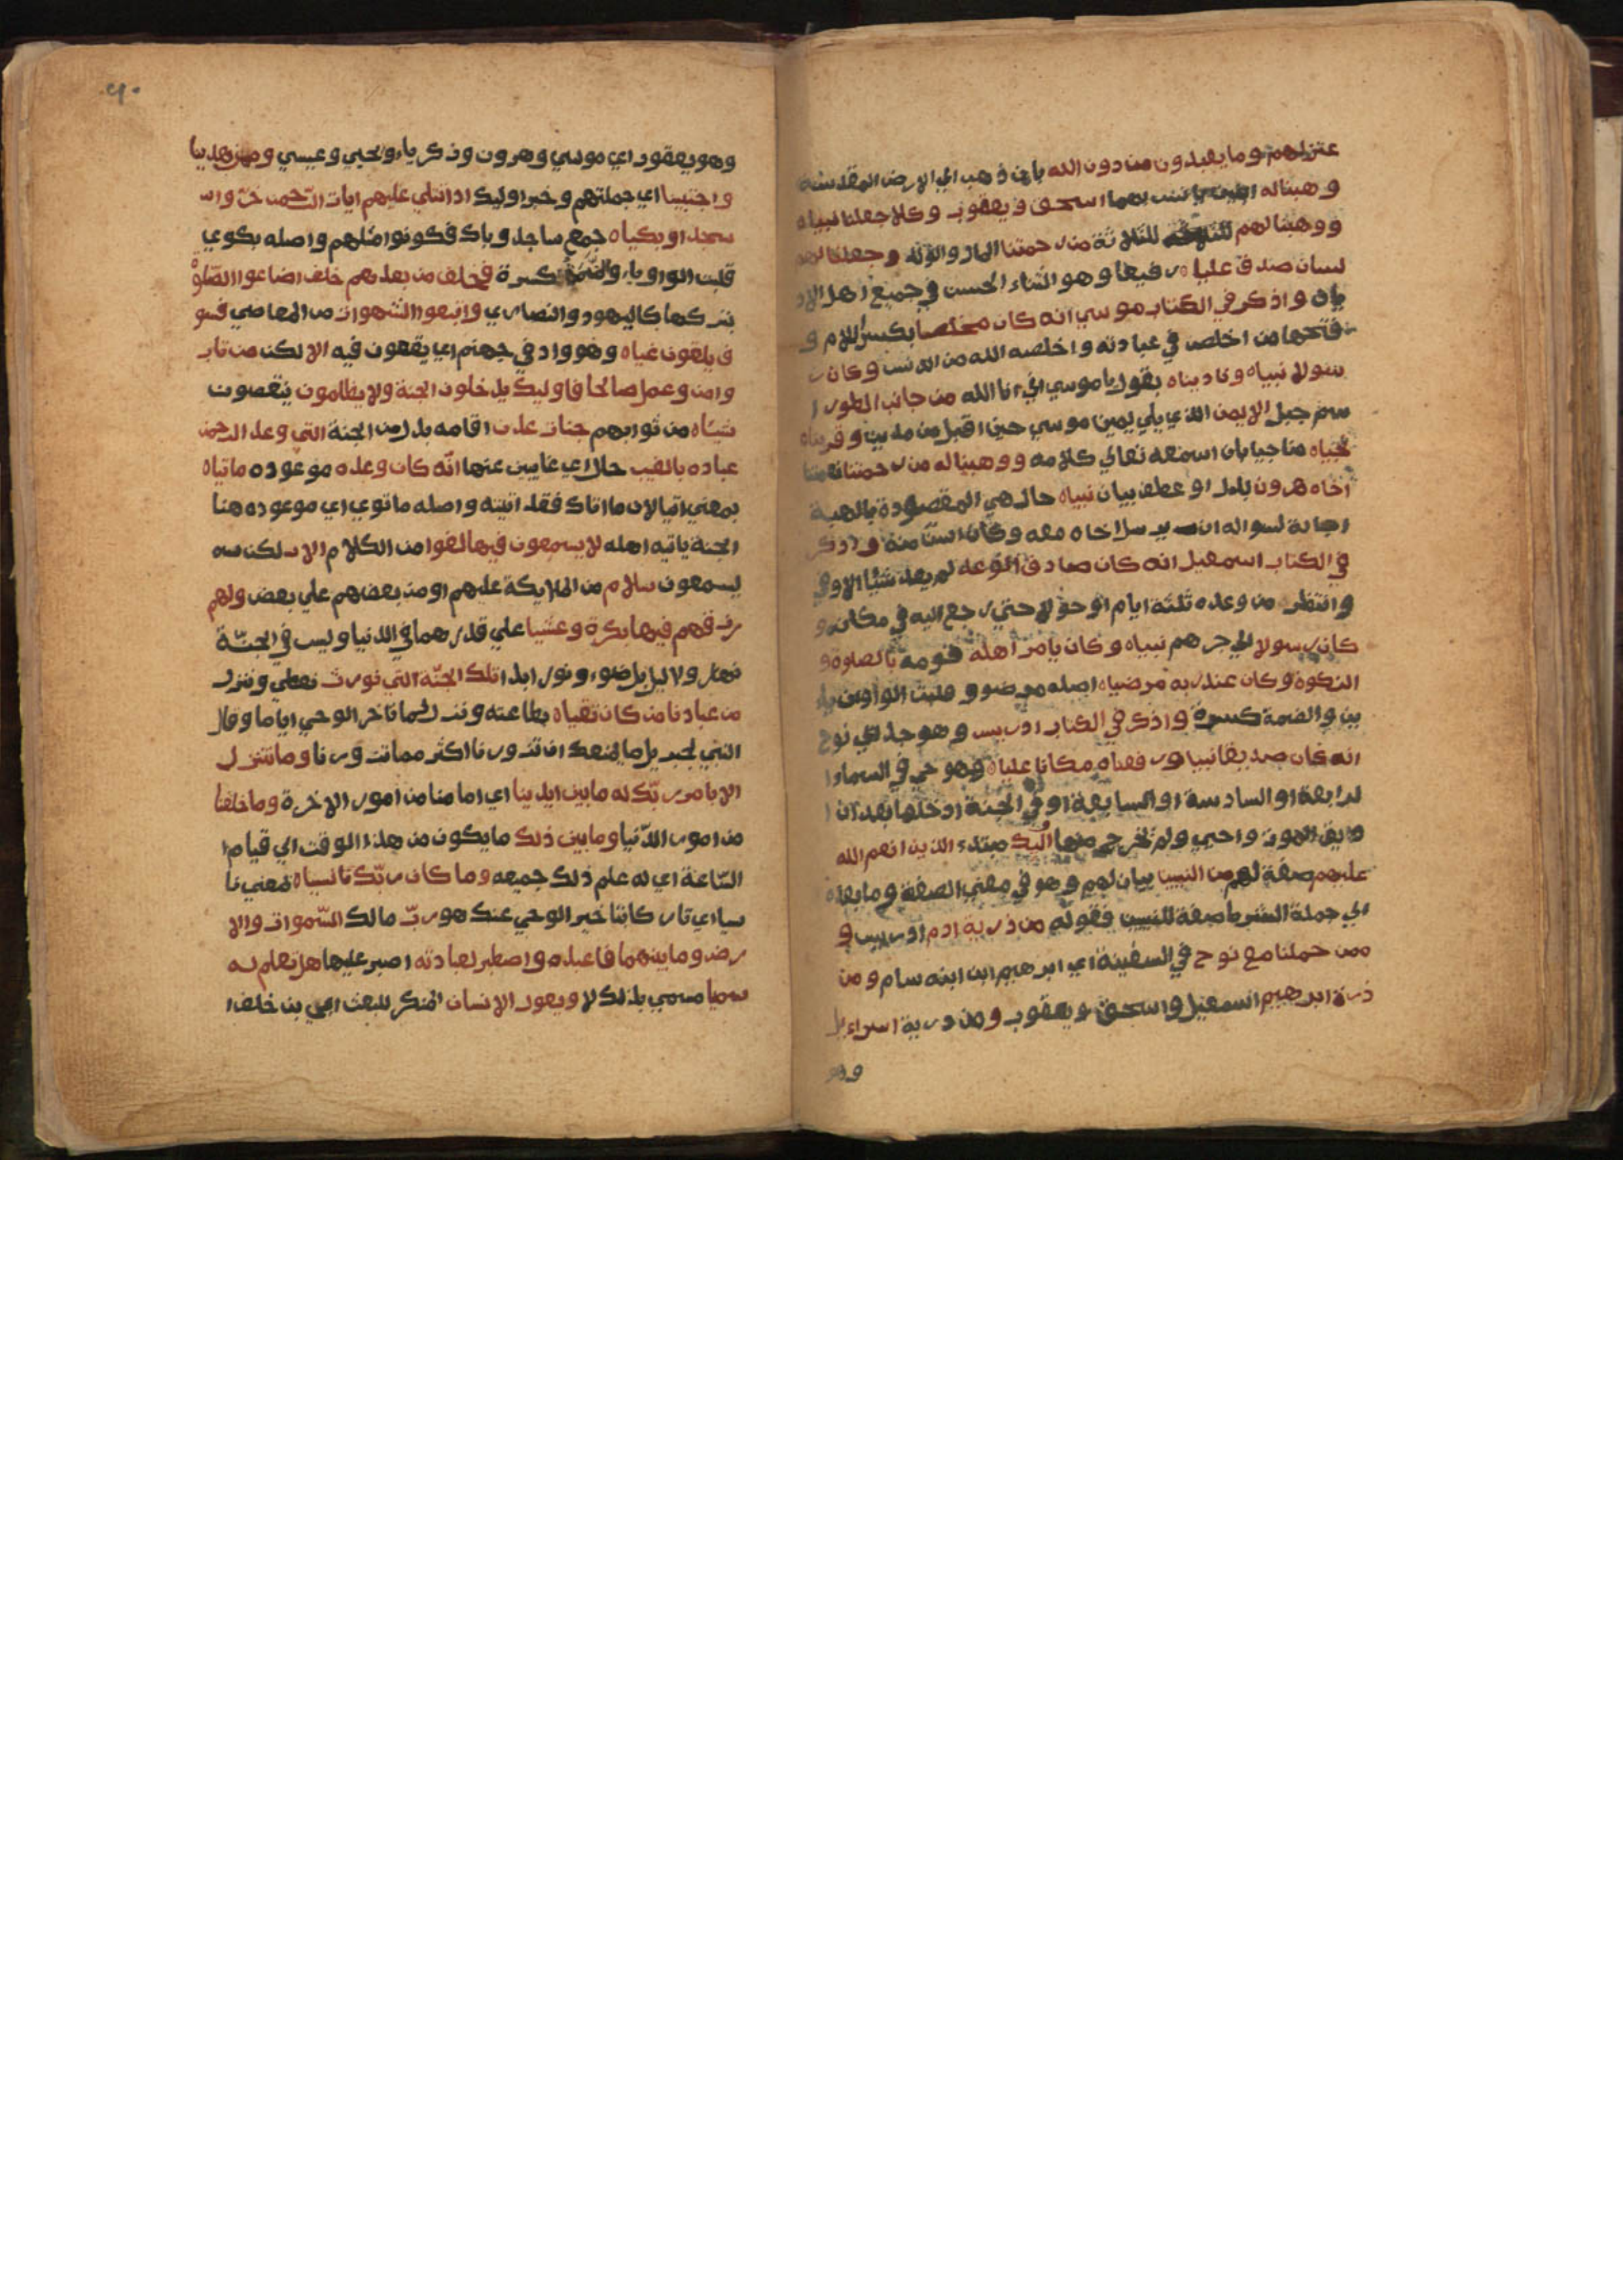 عتزلهم وما يعبدون من دون الله بان ذهب الي الارض المقدسة
وهبنا له يانس بهما اسحق ويعقوب وكلا جعلنا نبياه
ووهبنا لهم للثلاثة من رحمتنا المال والولد وجعلنا لهم
لسان صدق علياه رفيعا وهو الثناء الحسن في جميع اهل الاد
يان واذكر في الكتاب موسي انه كان مخلصا بكسر اللام و
فتحها من اخلص في عبادته واخلصه الله من الدنس وكان ر
سولا نبياه وناديناه بقول ياموسي اني انا الله من جانب الطور ا
سم جبل الايمن الذي يلي يمين موسي حين اقبل من مدين وقربناه
نجياه مناجيا بان اسمعه تعالي كلامه ووهبنا له من رحمتنا نعمتنا
اخاه هرون بدل او عطف بيان نبياه حال هي المقصودة بالهبة
اجابة لسواله ان يرسل اخاه معه وكان اسن منه واذكر
في الكتاب اسمعيل انه كان صادق الوعد لم يعد شئيا الا وفي
وانتظر من وعده ثلثة ايام او حولا حتي رجع اليه في مكانه و
كان رسولا الي جرهم نبياه وكان يامر اهله قومه بالصلوة و
الزكوة وكان عند ربه مرضياه اصله مرضوو قلبت الواوين يا
يين والضمة كسرة واذكر في الكتاب ادريس وهو جد ابي نوح
انه كان صديقا نبيا ورفعناه مكانا علياه وهو حي في السماء ا
لرابعة او السادسة او السابعة او في الجنة ادخلها بعد ان ا
ذيق الموت واحيي ولم يخرج منها اوليك مبتدء الذين انعم الله
عليهم صفة لهم من النبيين بيان لهم وهو في معني الصفة وما بعده
الي جملة الشرط صفة للنبيين فقوله من ذرية ادم ادريس و
ممن حملنا مع نوح في السفينة اي ابرهيم ابن ابنه سام ومن
ذرية ابرهيم اسمعيل واسحق ويعقوب ومن ذرية اسراءيل
وهو
وهو يعقوب اي موسي وهرون وزكرياء ويحيي وعيسي وممن هدينا
واجتبينا اي جملتهم وخبر اوليك اذا تتلي عليهم ايات الرحمن خرّ واس
سجدا وبكياه جمع ساجد وباك فكونوا مثلهم واصله بكوي
قلبت الواو ياء والضمة كسرة فخلف من بعدهم خلف اضاعوا الصلوة
بتركها كاليهود والنصاري واتبعوا الشهوات من المعاصي فسو
ف يلقون غياه وهو واد في جهنم اي يقعون فيه الا لكن من تاب
وامن وعمل صالحا فاوليك يدخلون الجنة ولا يظلمون ينقصون
شيئاه من ثوابهم جنات عدن اقامه بدل من الجنة التي وعد الرحمن
عباده بالغيب حال اي غايبين عنها انّه كان وعده موعوده ماتياه
بمعني اتيا لان ما اتاك فقد اتيته واصله ماتوي اي موعوده هنا
الجنة ياتيه اهله لا يسمعون فيها لغوا من الكلام الا لكن
يسمعون سلام من الملايكة عليهم او من بعضهم علي بعض ولهم
رزقهم فيها بكرة وعشيا علي قدرهما في الدنيا وليس في الجنّة
نهار ولا ليل بل ضوء ونور ابدا تلك الجنّة التي نورث نعطي وننزل
من عبادنا من كان تقياه بطاعته ونزل لما تاخر الوحي اياما وقال
النبي لجبريل ما يمنعك ان تزورنا اكثر مما تزورنا وما نتنزل
الا بامر ربّك له ما بين ايدينا اي امامنا من امور الاخرة وما خلفنا
من امور الدّنيا وما بين ذلك ما يكون من هذا الوقت الي قيام ا
السّاعة اي له علم ذلك جميعه وما كان ربّك نسياه بمعني نا
سيا اي تاركا بتاخير الوحي عنك هو ربّ مالك السّموات والا
رض وما بينهما فاعبده واصطبر لعبادته اصبر عليها هل تعلم له
سميا مسمي بذلك لا ويقول الانسان المنكر للبعث ابي بن خلف ا